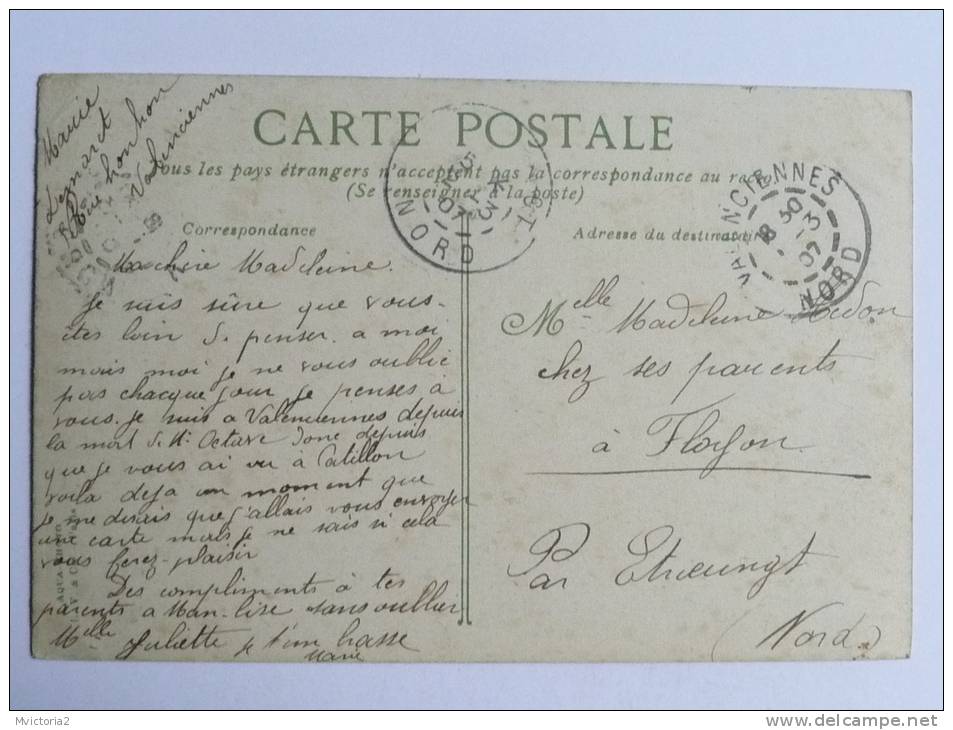 Marie
Legnaret
Rue honchon
Valenciennes
CARTE POSTALE
Tous les pays étrangers n'acceptent pas la correspondance au recto
(Se renseigner à la poste)
Correspondance
Adresse du destinataire
NORD
VALENCIENNES
18 30
-3
07
NORD
Ma chère Madeleine
Je suis sûre que vous-
êtes loin de penser a moi
mais moi je ne vous oublie
pas chacque jour je penses à
vous. je suis a Valenciennes depuis
la mort de Octave donc depuis
que je vous ai vu à Catillon
voila deja un moment que
je me disais que j'allais vous envoyer
une carte mais je ne sais si cela
vous ferez-plaisir
Des compliments à tes
parents a Man-lise sans oublier
Melle Juliette je t'embrasse
Marie
Melle Madeleine Hédon
chez ses parents
à Floyon
Par Etrœungt
(Nord)
AQUA PHOTO
Mvictoria2
delcampe.net